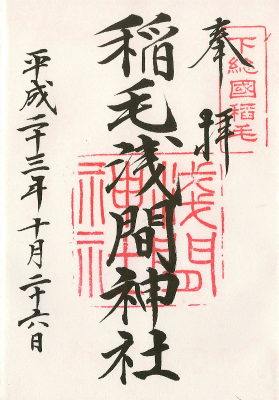 下総國稲毛
奉拝
稲毛浅間神社
浅間
神社
平成二十三年十月二十六日